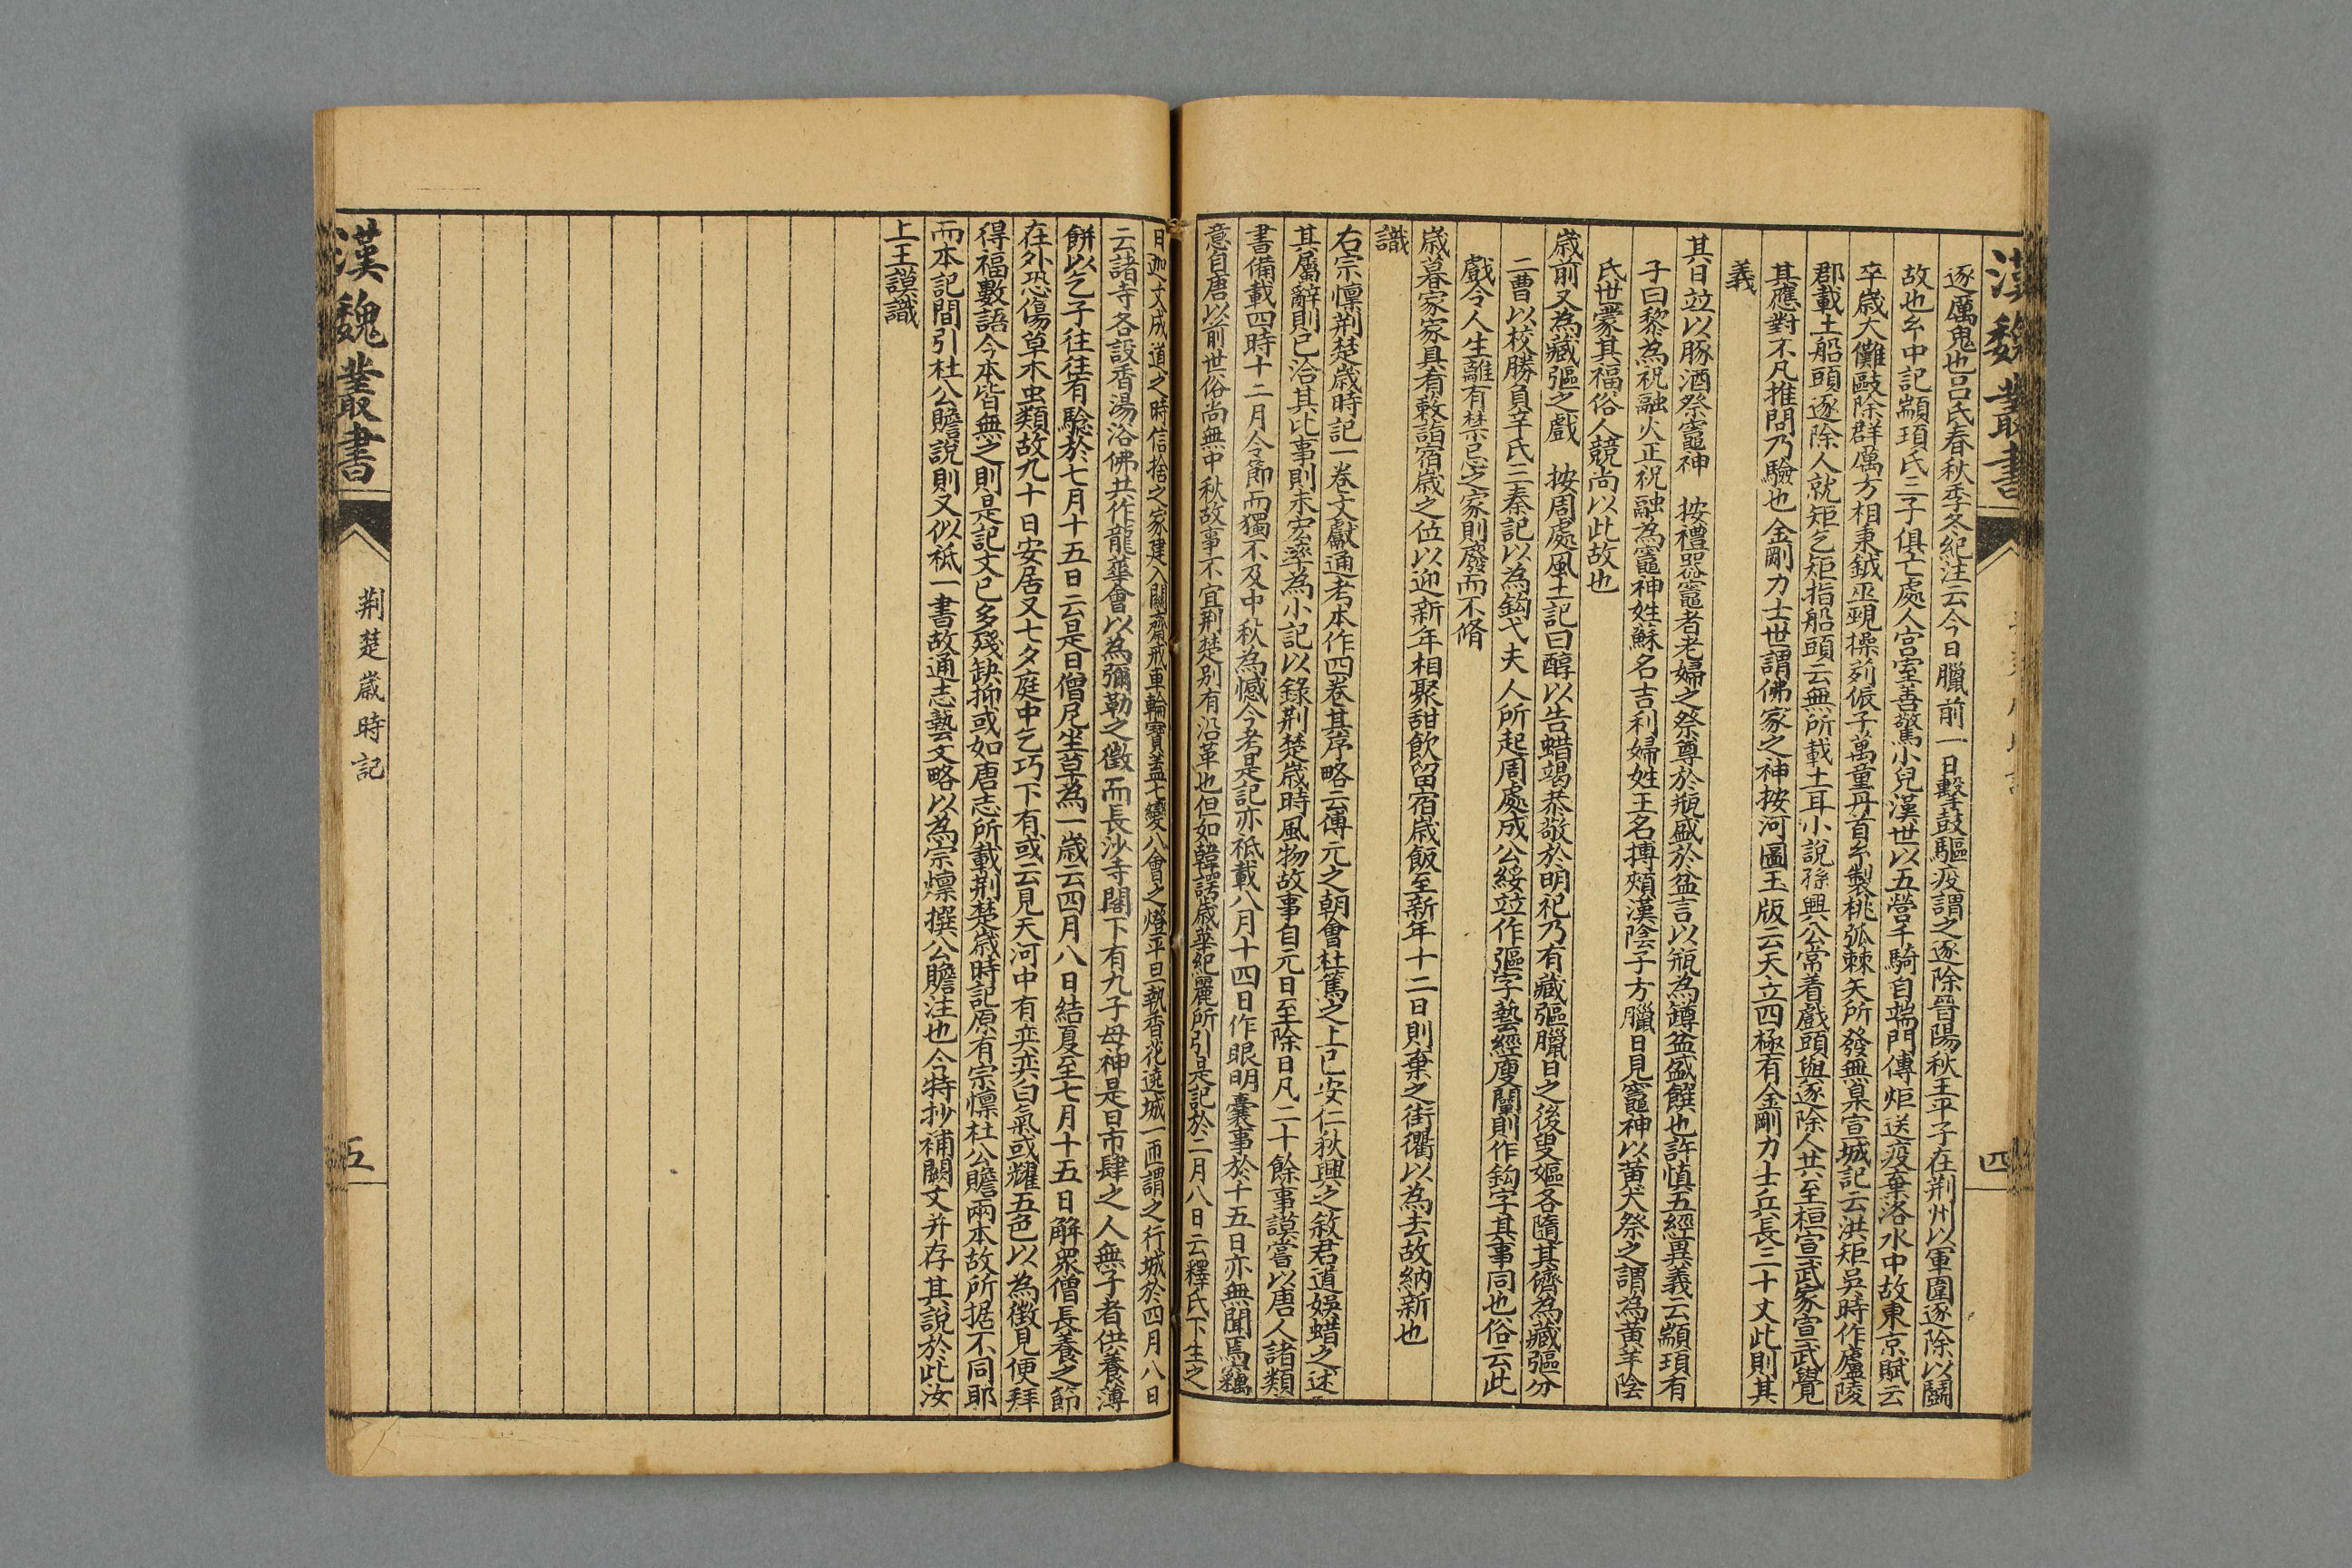 漢魏叢書
四
逐厲鬼也呂氏春秋季冬紀注云今日臘前一日擊鼓驅疫謂之逐除晉陽秋王平子在荆州以軍圍逐除以鬬
故也玄中記顓頊氏三子俱亡處人宫室善驚小兒漢世以五營千騎自端門傳炬送疫棄洛水中故東京賦云
卒歲大儺敺除群厲方相秉鉞巫覡操茢侲子萬童丹首玄製桃弧棘矢所發無臬宣城記云洪矩吳時作廬陵
郡載土船頭逐除人就矩乞矩指船頭云無所載土耳小說孫興公常着戲頭與逐除人共至桓宣武家宣武覺
其應對不凡推問乃驗也金剛力士世謂佛家之神按河圖玉版云天立四極有金剛力士兵長三十丈此則其
義
其日竝以豚酒祭竈神　按禮器竈者老婦之祭尊於瓶盛於盆言以瓶為罇盆盛饌也許慎五經異義云顓頊有
子曰黎為祝融火正祝融為竈神姓蘇名吉利婦姓王名摶頰漢陰子方臘日見竈神以黄犬祭之謂為黄羊陰
氏世蒙其福俗人競尚以此故也
歲前又為藏彄之戲　按周處風土記曰醇以告蜡竭恭敬於明祀乃有藏彄臘日之後叟嫗各隨其儕為藏彄分
二曹以校勝負辛氏三秦記以為鈎弋夫人所起周處成公綏竝作彄字藝經庾闡則作鈎字其事同也俗云此
戲令人生離有禁忌之家則廢而不脩
歲暮家家具肴蔌詣宿歲之位以迎新年相聚酣飲留宿歲飯至新年十二日則棄之街衢以為去故納新也
識
右宗懔荆楚歲時記一卷文獻通考本作四卷其序略云傅元之朝會杜篤之上巳安仁秋興之敘君道娛蜡之述
其屬辭則已洽其比事則未宏率為小記以錄荆楚歲時風物故事自元日至除日凡二十餘事謨嘗以唐人諸類
書備載四時十二月令節而獨不及中秋為憾今考是記亦祗載八月十四日作眼明囊事於十五日亦無聞焉竊
意自唐以前世俗尚無中秋故事不宜荆楚别有沿革也但如韓諤歲華紀麗所引是記於二月八日云釋氏下生之
日迦文成道之時信捨之家建入關齋戒車輪寶蓋七變八會之燈平旦執香花遶城一匝謂之行城於四月八日
云諸寺各設香湯浴佛共作龍華會以為彌勒之徵而長沙寺閣下有九子母神是日市肆之人無子者供養薄
餅以乞子往往有驗於七月十五日云是日僧尼坐草為一歲云四月八日結夏至七月十五日解衆僧長養之節
在外恐傷草木虫類故九十日安居又七夕庭中乞巧下有或云見天河中有奕奕白氣或耀五色以為徵見便拜
得福數語今本皆無之則是記文已多殘缺抑或如唐志所載荆楚歲時記原有宗懔杜公贍兩本故所据不同耶
而本記間引杜公贍說則又似祗一書故通志藝文略以為宗懔撰公贍注也今特抄補闕文并存其說於此汝
上王謨識
漢魏叢書
荆楚歲時記
五